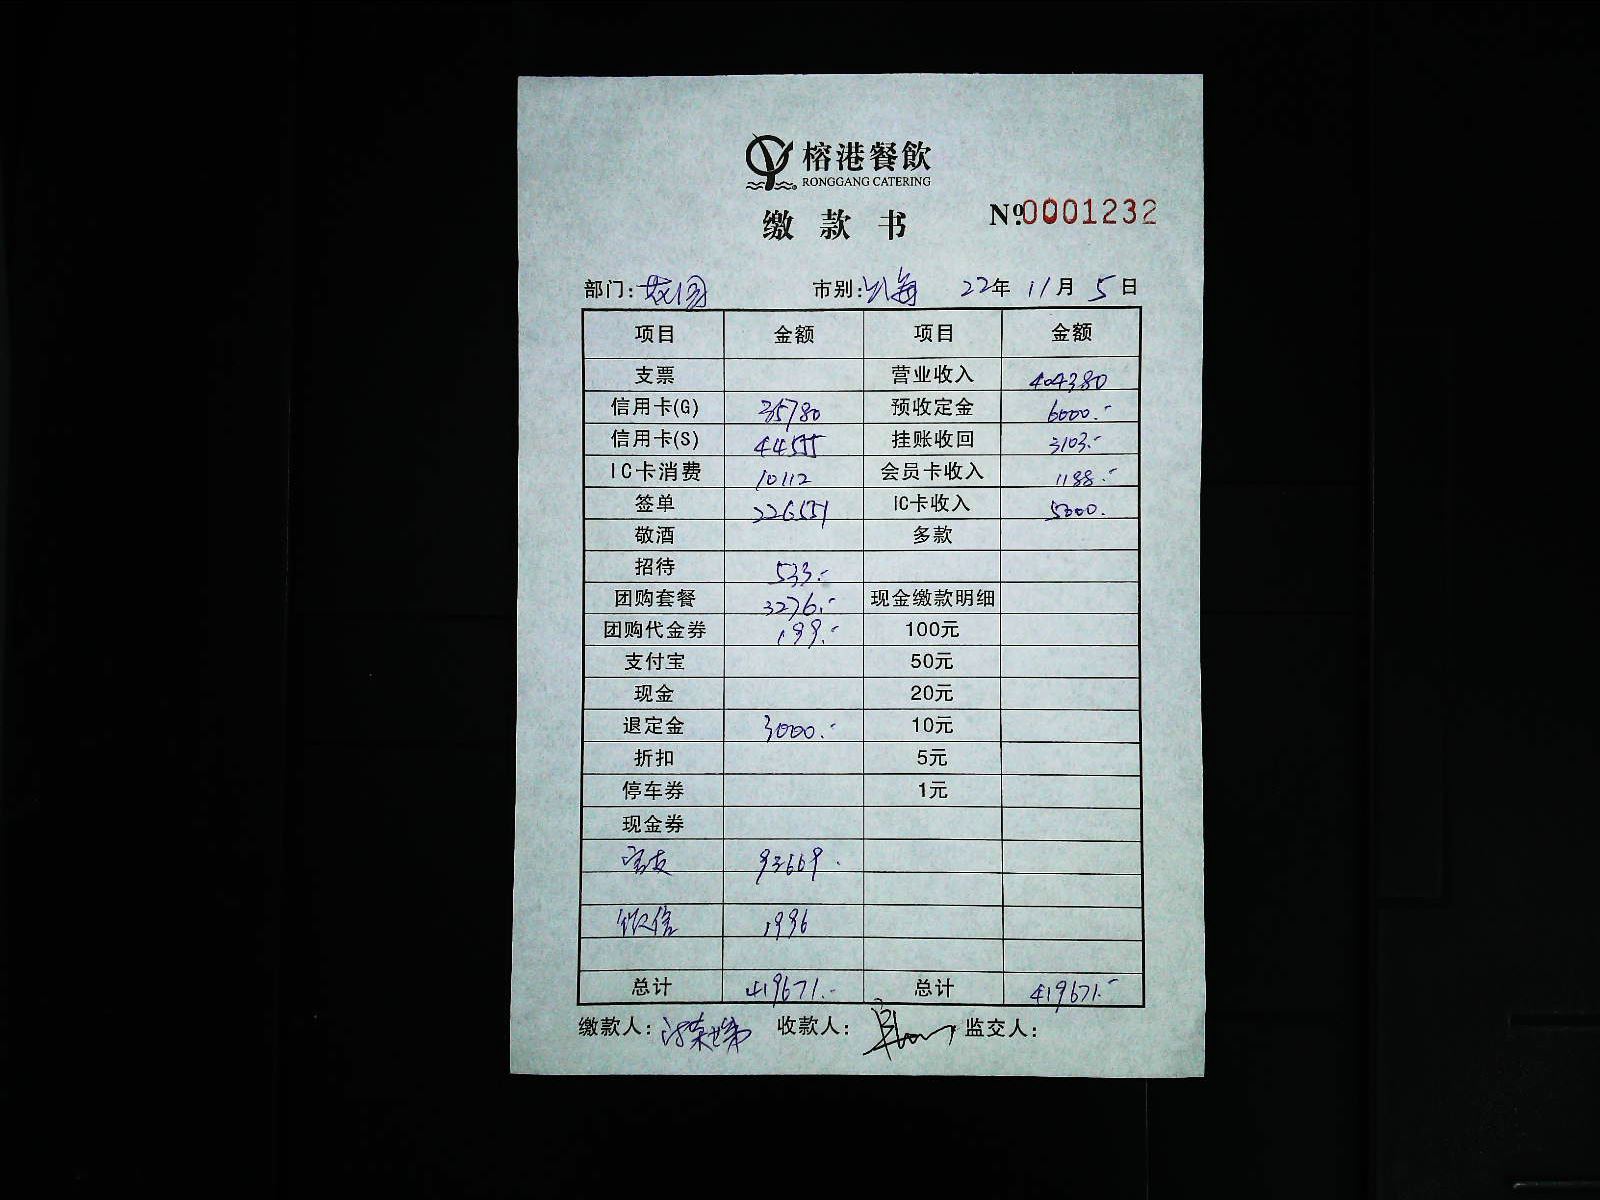 榕港餐飲
RONGGANG CATERING
缴款书
№0001232
部门: 市别:上海 22年 11月 5日
项目 金额 项目 金额
支票 营业收入 404380
信用卡(G) 35780 预收定金 6000.-
信用卡(S) 44555 挂账收回 3103.-
IC卡消费 10112 会员卡收入 1188.-
签单 226551 IC卡收入 5000.
敬酒 多款
招待 533.-
团购套餐 3276.- 现金缴款明细
团购代金券 199.- 100元
支付宝 50元
现金 20元
退定金 3000.- 10元
折扣 5元
停车券 1元
现金券
93669.
1996
总计 419671.- 总计 419671.-
缴款人: 收款人: 监交人: